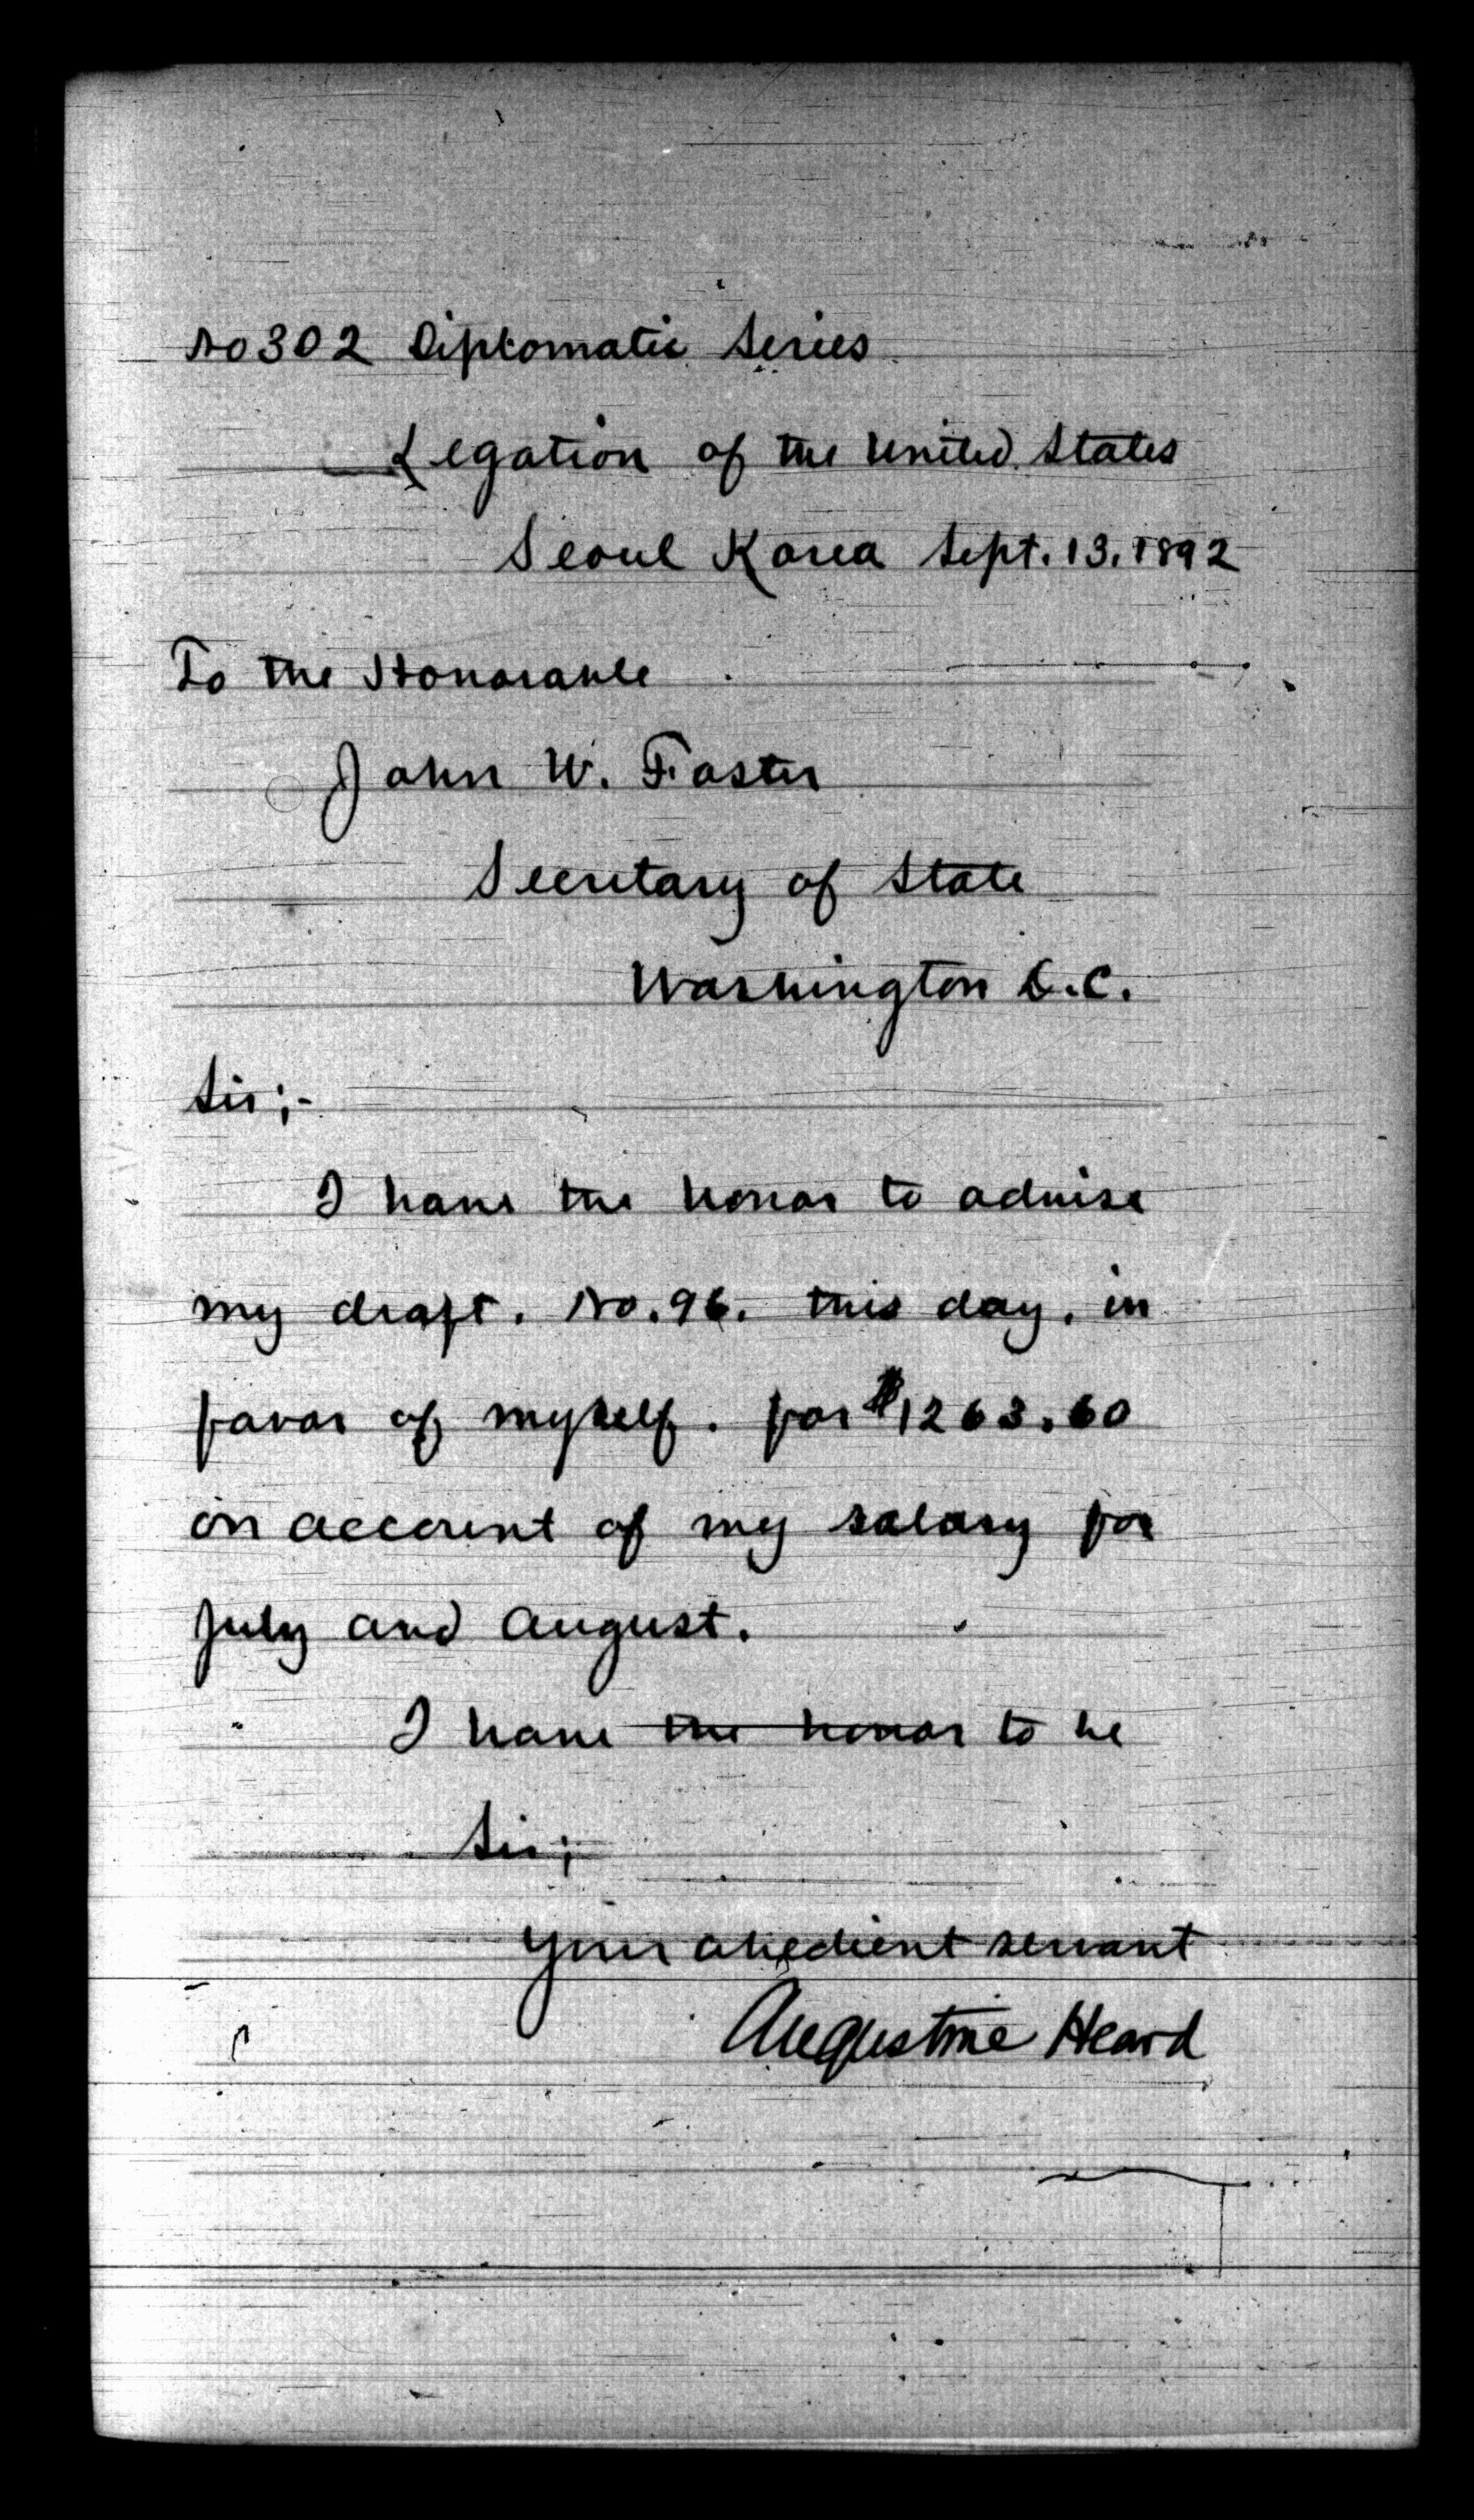 No 302 Diplomatic Series
Legation of the United States
Seoul Korea Sept. 13, 1892
To the Honorable
John W. Foster
Secretary of State
Washington D.C.
Sir;-
I have the honor to advise
my draft. No. 96. this day. in
favor of myself. for $1263.60
on account of my salary for
July and August.
I have the honor to be
Sir;
Your obedient servant
Augustine Heard